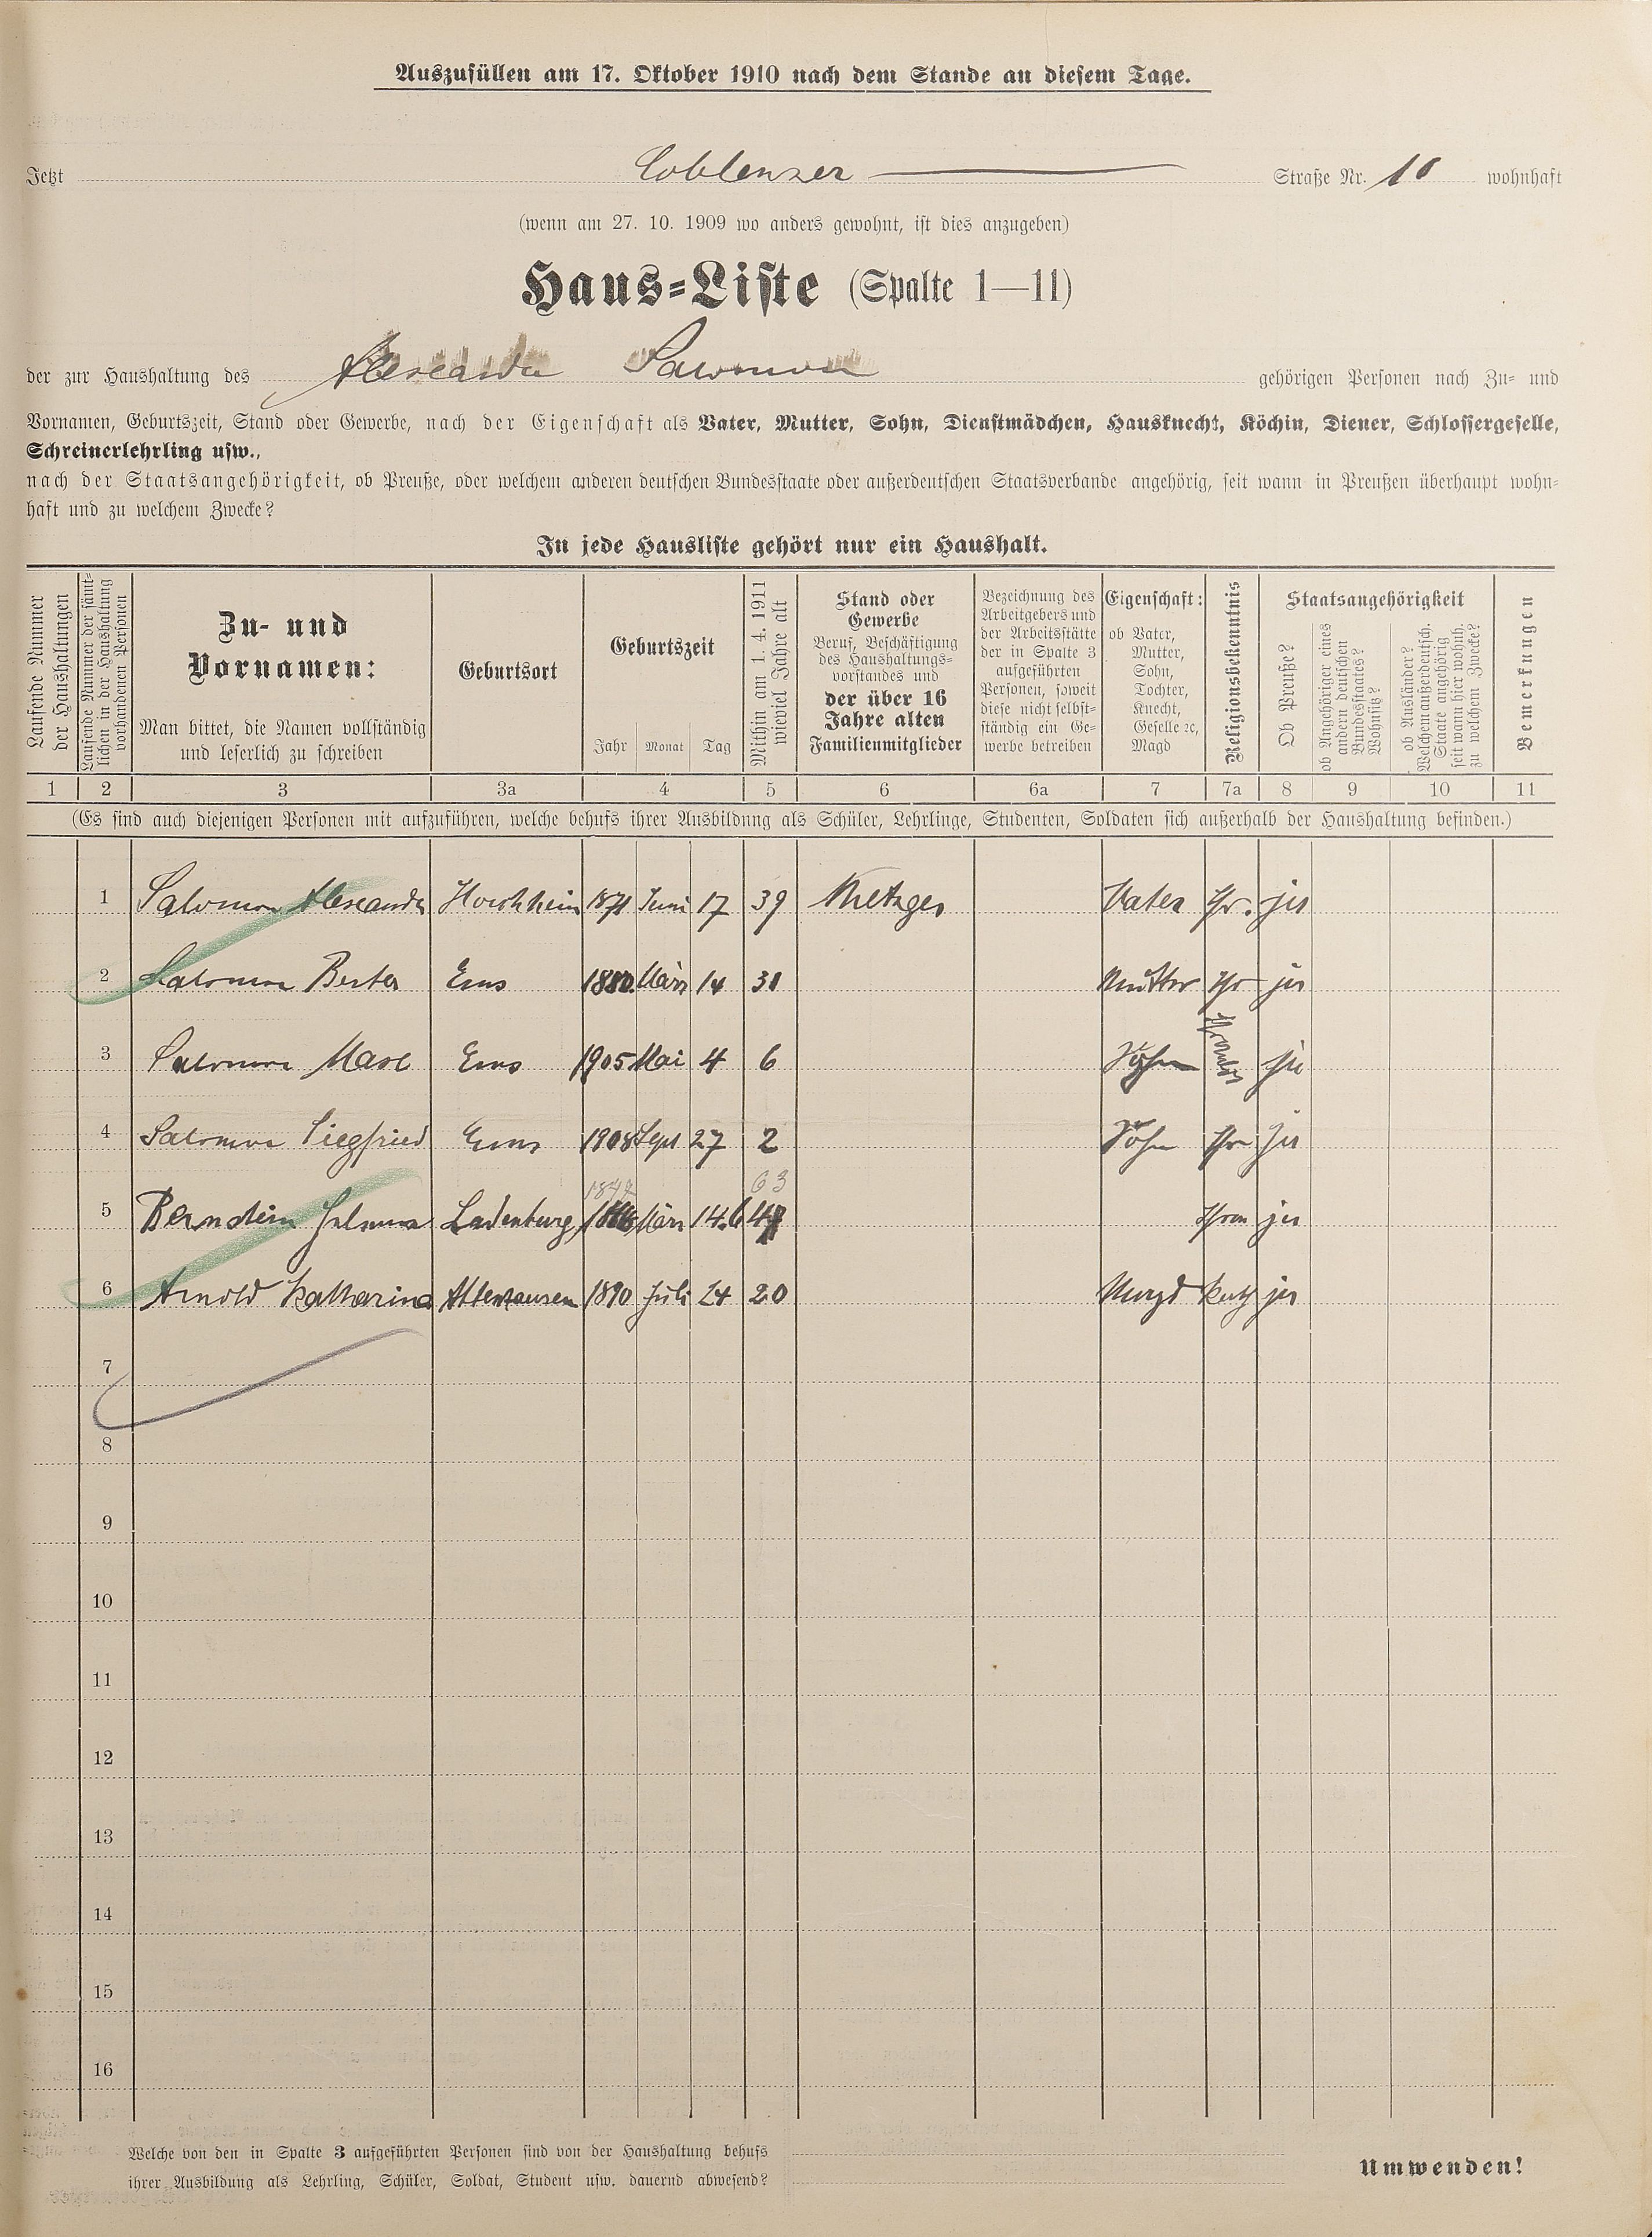 Auszufüllen am 17. Oktober 1910 nach dem Stande an diesem Tage.
Jetzt Coblenzer Straße Nr. 10 wohnhaft
(wenn am 27. 10. 1909 wo anders gewohnt, ist dies anzugeben)
Haus-Liste (Spalte 1—11)
der zur Haushaltung des Alexander Salomon gehörigen Personen nach Zu- und
Vornamen, Geburtszeit, Stand oder Gewerbe, nach der Eigenschaft als Vater, Mutter, Sohn, Dienstmädchen, Hausknecht, Köchin, Diener, Schlossergeselle,
Schreinerlehrling usw.,
nach der Staatsangehörigkeit, ob Preuße, oder welchem anderen deutschen Bundesstaate oder außerdeutschen Staatsverbande angehörig, seit wann in Preußen überhaupt wohn-
haft und zu welchem Zwecke?
In jede Hausliste gehört nur ein Haushalt.
Laufende Nummer
der Haushaltungen
Laufende Nummer der sämt-
lichen in der Haushaltung
vorhandenen Personen
Zu- und
Vornamen:
Man bittet, die Namen vollständig
und leserlich zu schreiben
Geburtsort
Geburtszeit
Jahr Monat Tag
Mithin am 1. 4. 1911
wieviel Jahre alt
Stand oder
Gewerbe
Beruf, Beschäftigung
des Haushaltungs-
vorstandes und
der über 16
Jahre alten
Familienmitglieder
Bezeichnung des
Arbeitgebers und
der Arbeitsstätte
der in Spalte 3
aufgeführten
Personen, soweit
diese nicht selbst-
ständig ein Ge-
werbe betreiben
Eigenschaft:
ob Vater,
Mutter,
Sohn,
Tochter,
Knecht,
Geselle ꝛc,
Magd
Religionsbekenntnis
Staatsangehörigkeit
Ob Preuße?
ob Angehöriger eines
andern deutschen
Bundesstaates?
Wohnsitz?
ob Ausländer?
Welchem außerdeutsch.
Staate angehörig
seit wann hier wohnh.
zu welchem Zwecke?
Bemerkungen
1 2 3 3a 4 5 6 6a 7 7a 8 9 10 11
(Es sind auch diejenigen Personen mit aufzuführen, welche behufs ihrer Ausbildung als Schüler, Lehrlinge, Studenten, Soldaten sich außerhalb der Haushaltung befinden.)
1 Salomon Alexander Horchheim 1871 Juni 17 39 Metzger Vater Isr. ja
2 Salomon Berta Ems 1880 März 14 31 Mutter Isr ja
3 Salomon Max Ems 1905 Mai 4 6 Sohn ja
4 Salomon Siegfried Ems 1908 Sept 27 2 Sohn Isr ja
1847 63
5 Bernstein Ladenburg März 14 ja
6 Arnold Katharina Attenhausen 1890 Juli 24 20 Magd Kath ja
7
8
9
10
11
12
13
14
15
16
Welche von den in Spalte 3 aufgeführten Personen sind von der Haushaltung behufs
ihrer Ausbildung als Lehrling, Schüler, Soldat, Student usw. dauernd abwesend?
Umwenden!